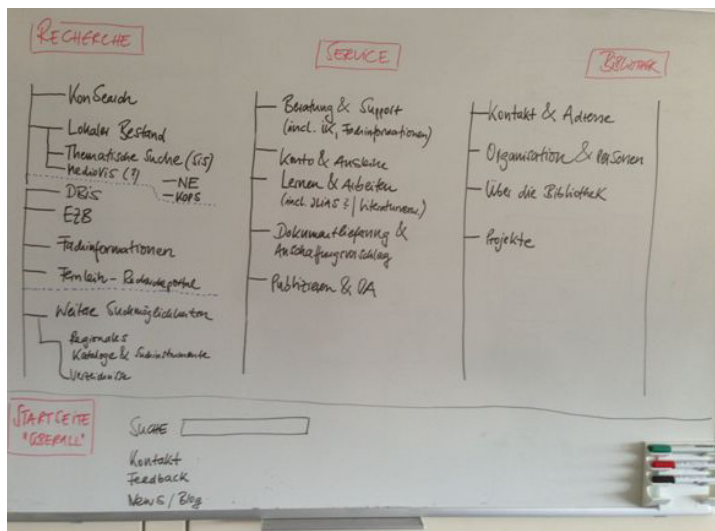 RECHERCHE
KonSearch
Lokaler Bestand
Thematische Suche (SIS)
MedioVis (?)
NE
KOPS
DBIS
EZB
Fachinformationen
Fernleih-Rechercheportal
Weitere Suchmöglichkeiten
Regionales
Kataloge & Suchinstrumente
Verzeichnisse
SERVICE
Beratung & Support
(incl. IK, Fachinformationen)
Konto & Ausleihe
Lernen & Arbeiten
(incl. ILIAS ? / Literaturverw.)
Dokumentlieferung &
Anschaffungsvorschlag
Publizieren & OA
BIBLIOTHEK
Kontakt & Adresse
Organisation & Personen
Über die Bibliothek
Projekte
STARTSEITE
"ÜBERALL"
SUCHE
Kontakt
Feedback
News / Blog